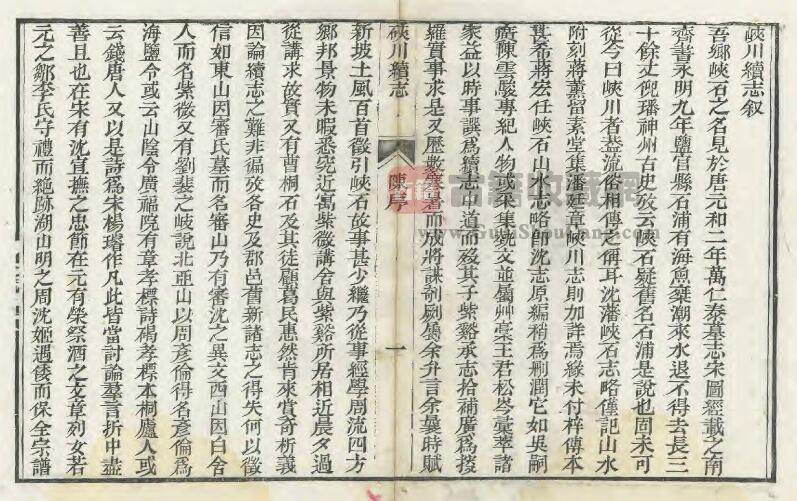 硤川續志叙
吾鄉峽石之名見於唐元和二年萬仁泰墓志宋圖經載之南
齊書永明九年鹽官縣石浦有海魚乗潮來水退不得去長三
十餘丈倪璠神州古史攷云峽石疑舊名石浦是說也固未可
從今曰峽川者葢流俗相傳之稱耳沈藩峽石志略僅記山水
附刻蔣薰留素堂集潘廷章峽川志則加詳焉緣未付梓傳本
甚希蔣宏任峽石山水志略卽沈志原編稍爲刪潤它如吳嗣
廣陳雲駿專紀人物或采集號文並屬艸稾王君松岑彚萃諸
家益以時事譔爲續志中道而歿其子紫谿承志拾補廣爲搜
羅質事求是又歷數暑而成將謀剞劂屬余弁言余曩時賦
硤川續志
陳序
一
新坡土風百首徵引峽石故事甚少繼乃從事經學周流四方
鄉邦景物未暇悉究近寓紫微講舍與紫谿所居相近晨夕過
從講求故實又有曹桐石及其徒顧葛民惠然肯來賞奇析義
因論續志之難非徧攷各史及郡邑舊新諸志之得失何以徵
信如東山因審氏墓而名審山乃有審沈之異文西山因白舍
人而名紫微又有劉裴之歧說北亞山以周彥倫得名彥倫爲
海鹽令或云山陰令廣福院有章孝標詩碣孝標本桐廬人或
云錢唐人又以是詩爲宋楊璿作凡此皆當討論羣言折中盡
善且也在宋有沈宣撫之忠節在元有榮祭酒之文章列女若
元之鄒李氏守禮而絶跡湖山明之周沈姬遇倭而保全宗譜
古籍收藏網
www.GuJiShouCang.com